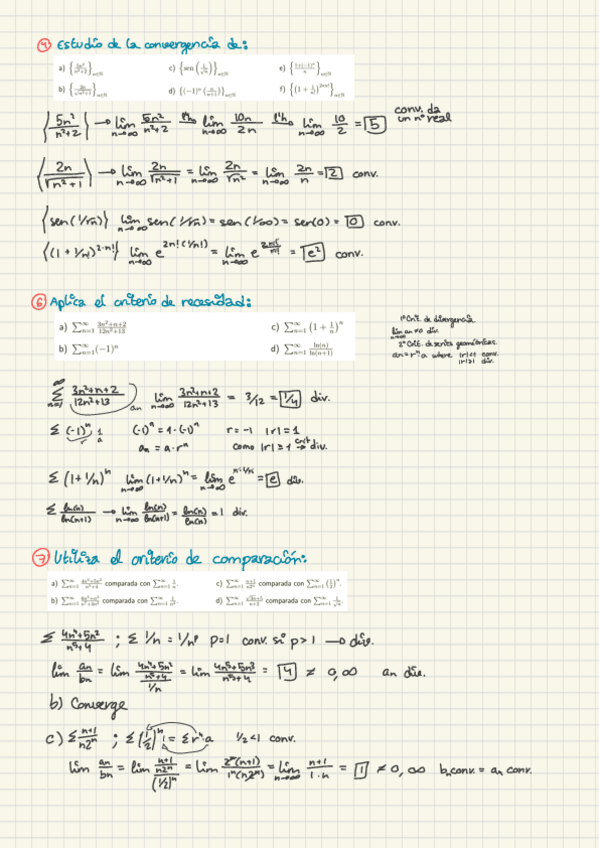 4 Estudio de la convergencia de:
a) {5n²/(n²+2)}n∈N c) {sen(1/√n)}n∈N e) {(1+(-1)ⁿ)/n}n∈N
b) {2n/√(n²+1)}n∈N d) {(-1)ⁿ }n∈N f) {(1+1/n!)^(2n!)}n∈N
{5n²/(n²+2)} → lim n→∞ 5n²/(n²+2) l'h lim n→∞ 10n/2n l'h lim n→∞ 10/2 = 5 conv. da un nº real
{2n/√(n²+1)} → lim n→∞ 2n/√(n²+1) = lim n→∞ 2n/√n² = lim n→∞ 2n/n = 2 conv.
{sen(1/√n)} lim n→∞ sen(1/√n) = sen(1/∞) = sen(0) = 0 conv.
{(1+1/n!)^(2·n!)} lim n→∞ e^(2n!(1/n!)) = lim n→∞ e^(2n!/n!) = e² conv.
6 Aplica el criterio de necesidad:
a) ∑ n=1 ∞ (3n²+n+2)/(12n²+13) c) ∑ n=1 ∞ (1+1/n)ⁿ
b) ∑ n=1 ∞ (-1)ⁿ d) ∑ n=1 ∞ ln(n)/ln(n+1)
1º Crit. de divergencia
lim n→∞ an≠0 div.
2º Crit. de series geométricas.
an = rⁿ·a where |r|<1 conv.
|r|≥1 div.
∑ n=1 ∞ (3n²+n+2)/(12n²+13) an lim n→∞ (3n²+n+2)/(12n²+13) = 3/12 = 1/4 div.
∑ (-1)ⁿ 1 r a (-1)ⁿ = 1·(-1)ⁿ r = -1 |r| = 1
an = a·rⁿ como |r| ≥ 1 crit → div.
∑ (1+1/n)ⁿ lim n→∞ (1+1/n)ⁿ = lim n→∞ e^(n·1/n) = e div.
∑ ln(n)/ln(n+1) → lim n→∞ ln(n)/ln(n+1) = ln(n)/ln(n) = 1 div.
7 Utiliza el criterio de comparación:
a) comparada con ∑ n=1 ∞ 1/n. c) ∑ n=1 ∞ (n+1)/(n2ⁿ) comparada con ∑ n=1 ∞ (1/2)ⁿ.
b) comparada con d) comparada con
∑ (4n⁴+5n²)/(n⁵+4) ; ∑ 1/n = 1/nᵖ p=1 conv. si p>1 → div.
lim an/bn = lim ((4n⁴+5n²)/(n⁵+4))/(1/n) = lim (4n⁵+5n³)/(n⁵+4) = 4 ≠ 0, ∞ an div.
b) Converge
c) ∑ (n+1)/(n2ⁿ) ; ∑ (1/2)ⁿ 1 = ∑ rⁿ·a 1/2<1 conv.
lim an/bn = lim ((n+1)/(n2ⁿ))/((1/2)ⁿ) = lim 2ⁿ(n+1)/(1ⁿ(n2ⁿ)) = lim n→∞ (n+1)/(1·n) = 1 ≠ 0, ∞ bn conv. = an conv.